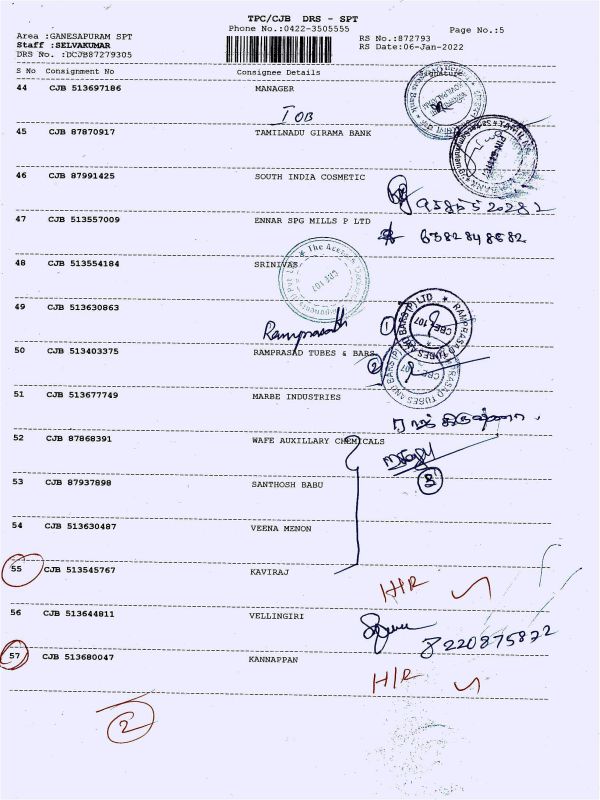 TPC/CJB DRS - SPT
Phone No.:0422-3505555
Page No.:5
Area :GANESAPURAM SPT
RS No.:872793
Staff :SELVAKUMAR
RS Date:06-Jan-2022
DRS No. :DCJB87279305
S No Consignment No Consignee Details Signature
44 CJB 513697186 MANAGER
IOB
45 CJB 87870917 TAMILNADU GIRAMA BANK
46 CJB 87991425 SOUTH INDIA COSMETIC
47 CJB 513557009 ENNAR SPG MILLS P LTD
6382848682
48 CJB 513554184 SRINIVAS
49 CJB 513630863
Ramprasath
1
RAMPRASAD TUBES AND BARS (P) LTD
CBE-107
50 CJB 513403375 RAMPRASAD TUBES & BARS
2
51 CJB 513677749 MARBE INDUSTRIES
52 CJB 87868391 WAFE AUXILLARY CHEMICALS
3
53 CJB 87937898 SANTHOSH BABU
54 CJB 513630487 VEENA MENON
55 CJB 513545767 KAVIRAJ
H/R
56 CJB 513644811 VELLINGIRI
8220875822
57 CJB 513680047 KANNAPPAN
H/R
2